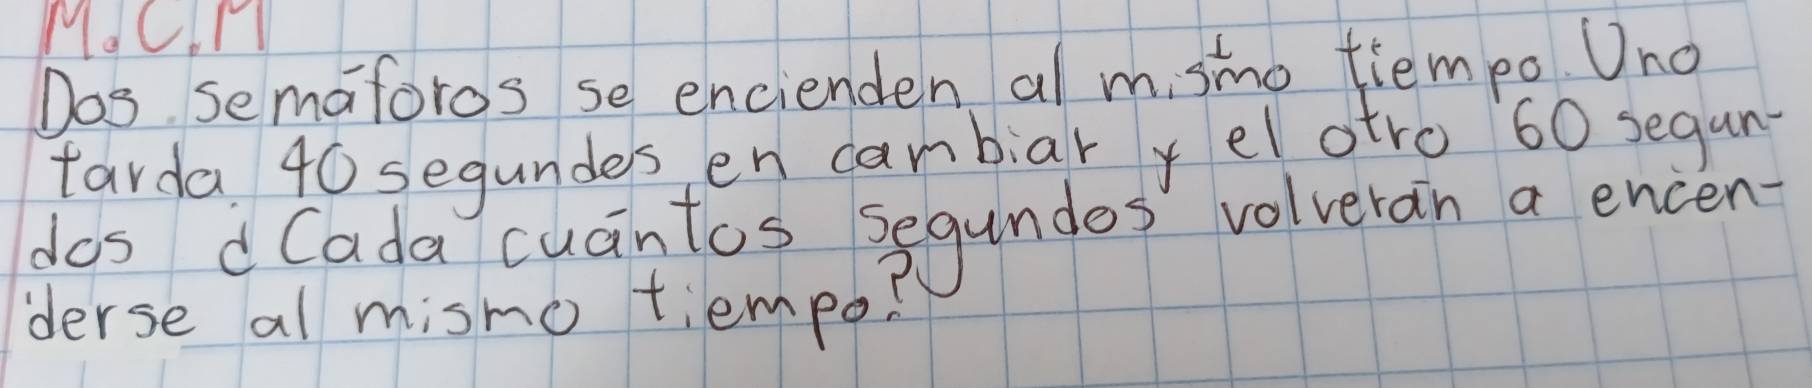 M.C.M
Dos semáforos se encienden al mismo tiempo. Uno
tarda 40 segundos en cambiar y el otro 60 segun-
dos ¿Cada cuántos segundos volverán a encen-
derse al mismo tiempo?